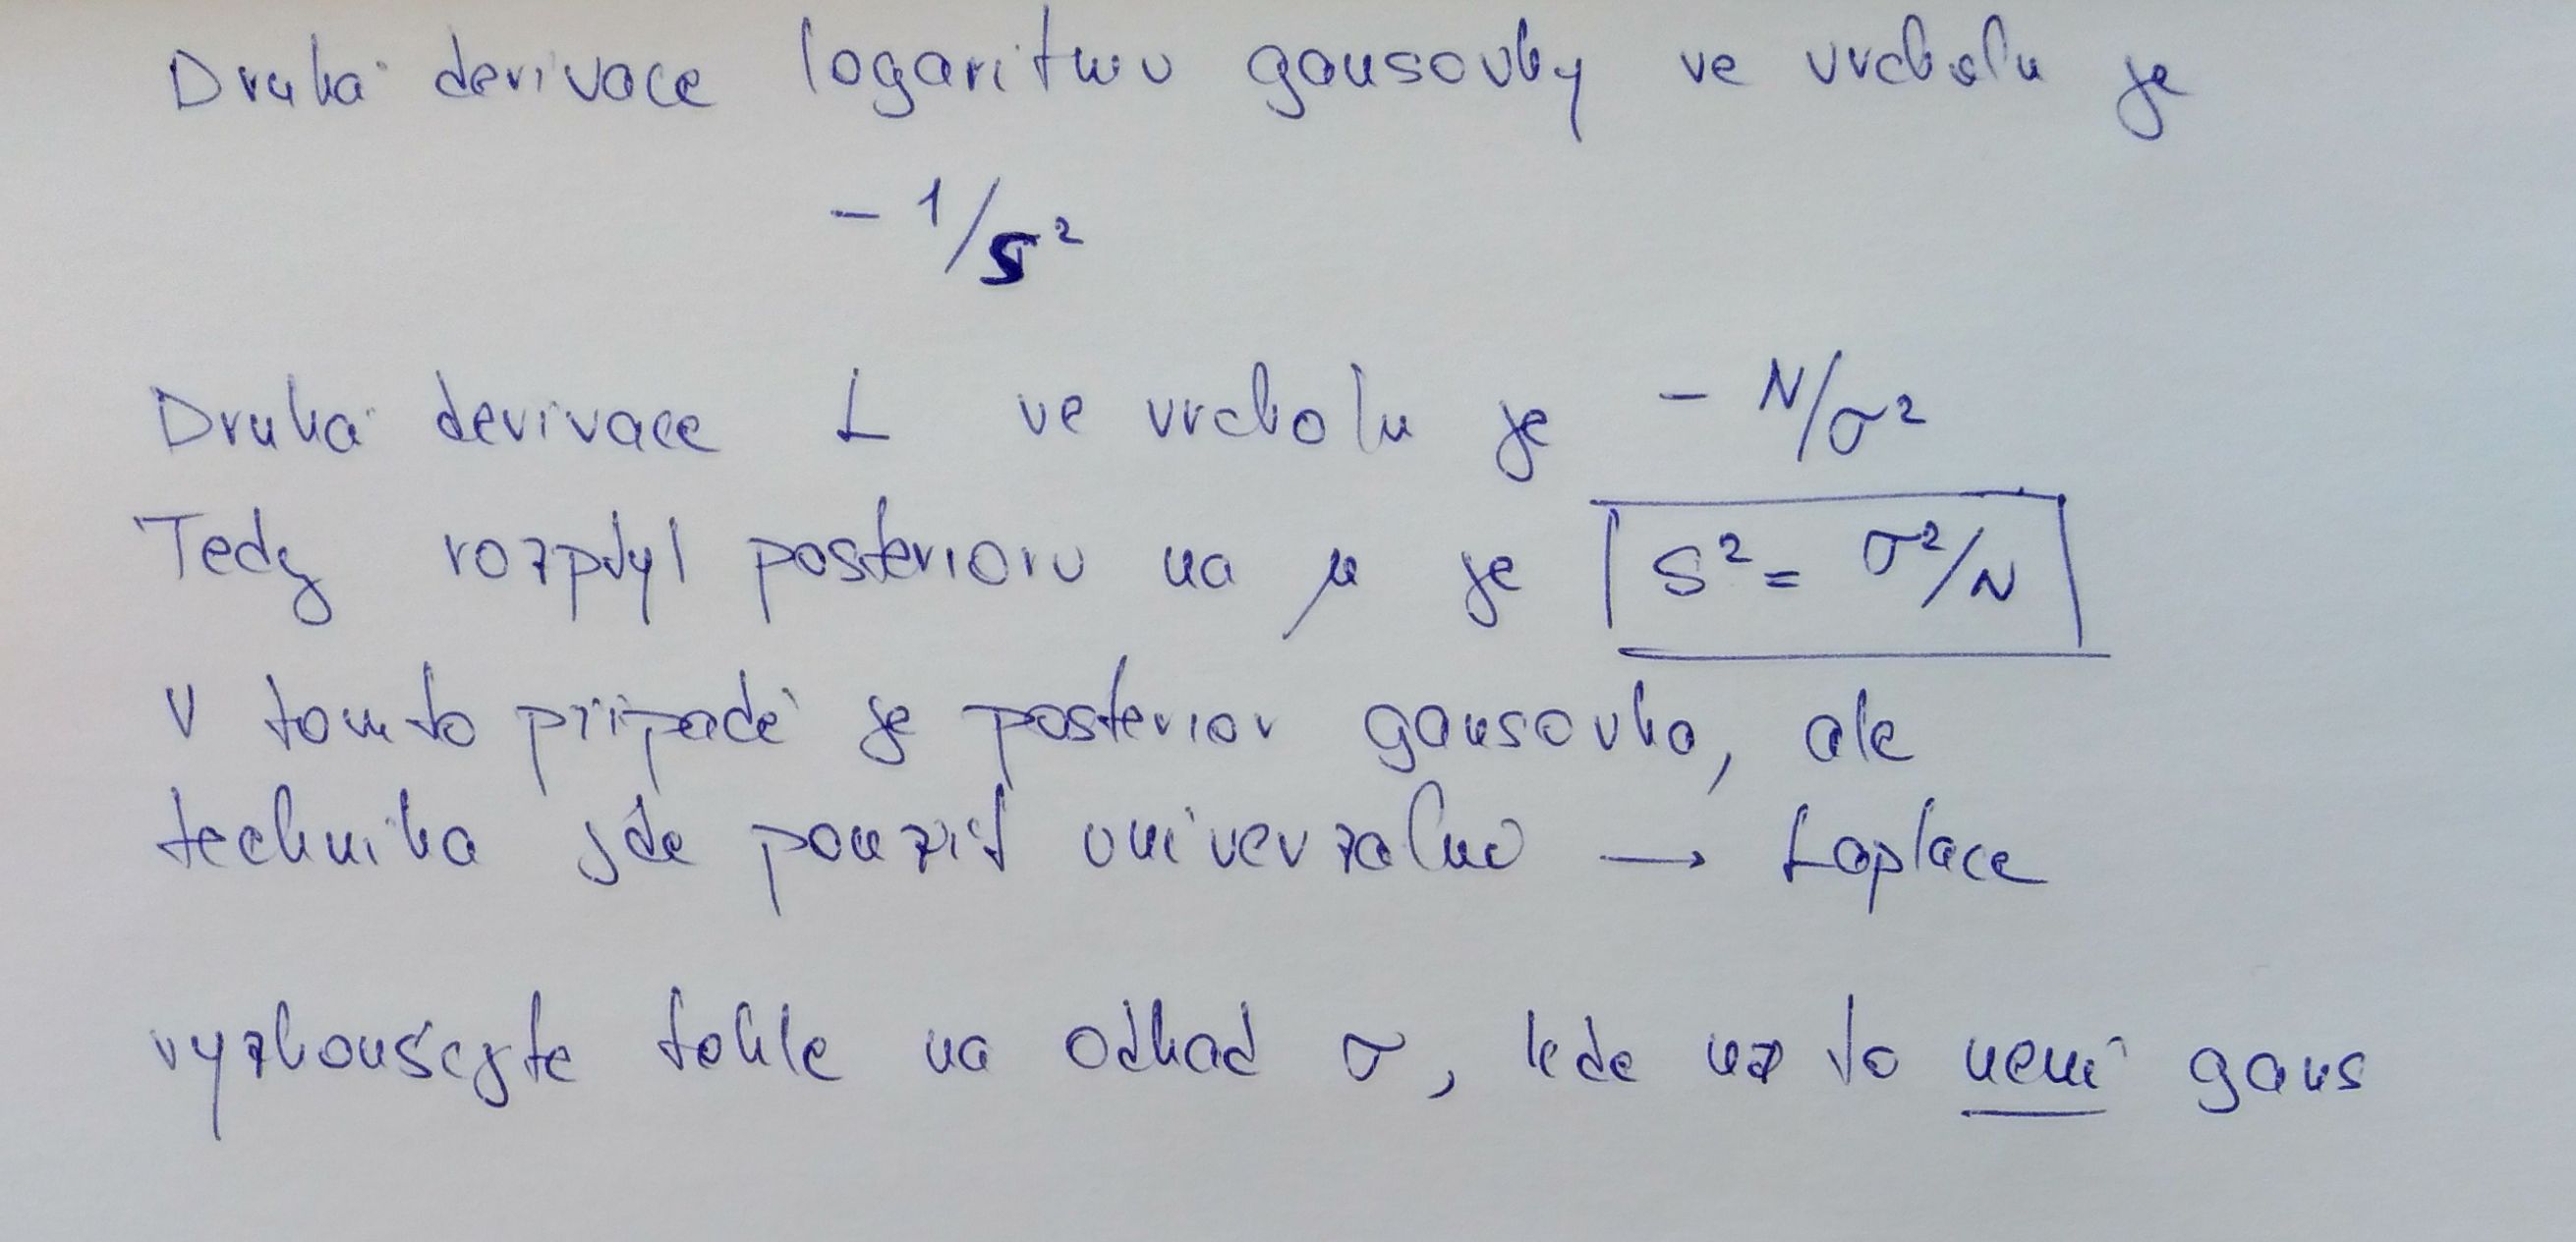 Druhá derivace logaritmu gausovky ve vrcholu je
- 1/s²
Druhá derivace L ve vrcholu je - N/σ²
Tedy rozptyl posterioru na μ je s² = σ²/N
V tomto případě je posterior gausovka, ale
technika jde použít univerzálně → Laplace
vyzkoušejte tohle na odhad σ, kde už to není gaus